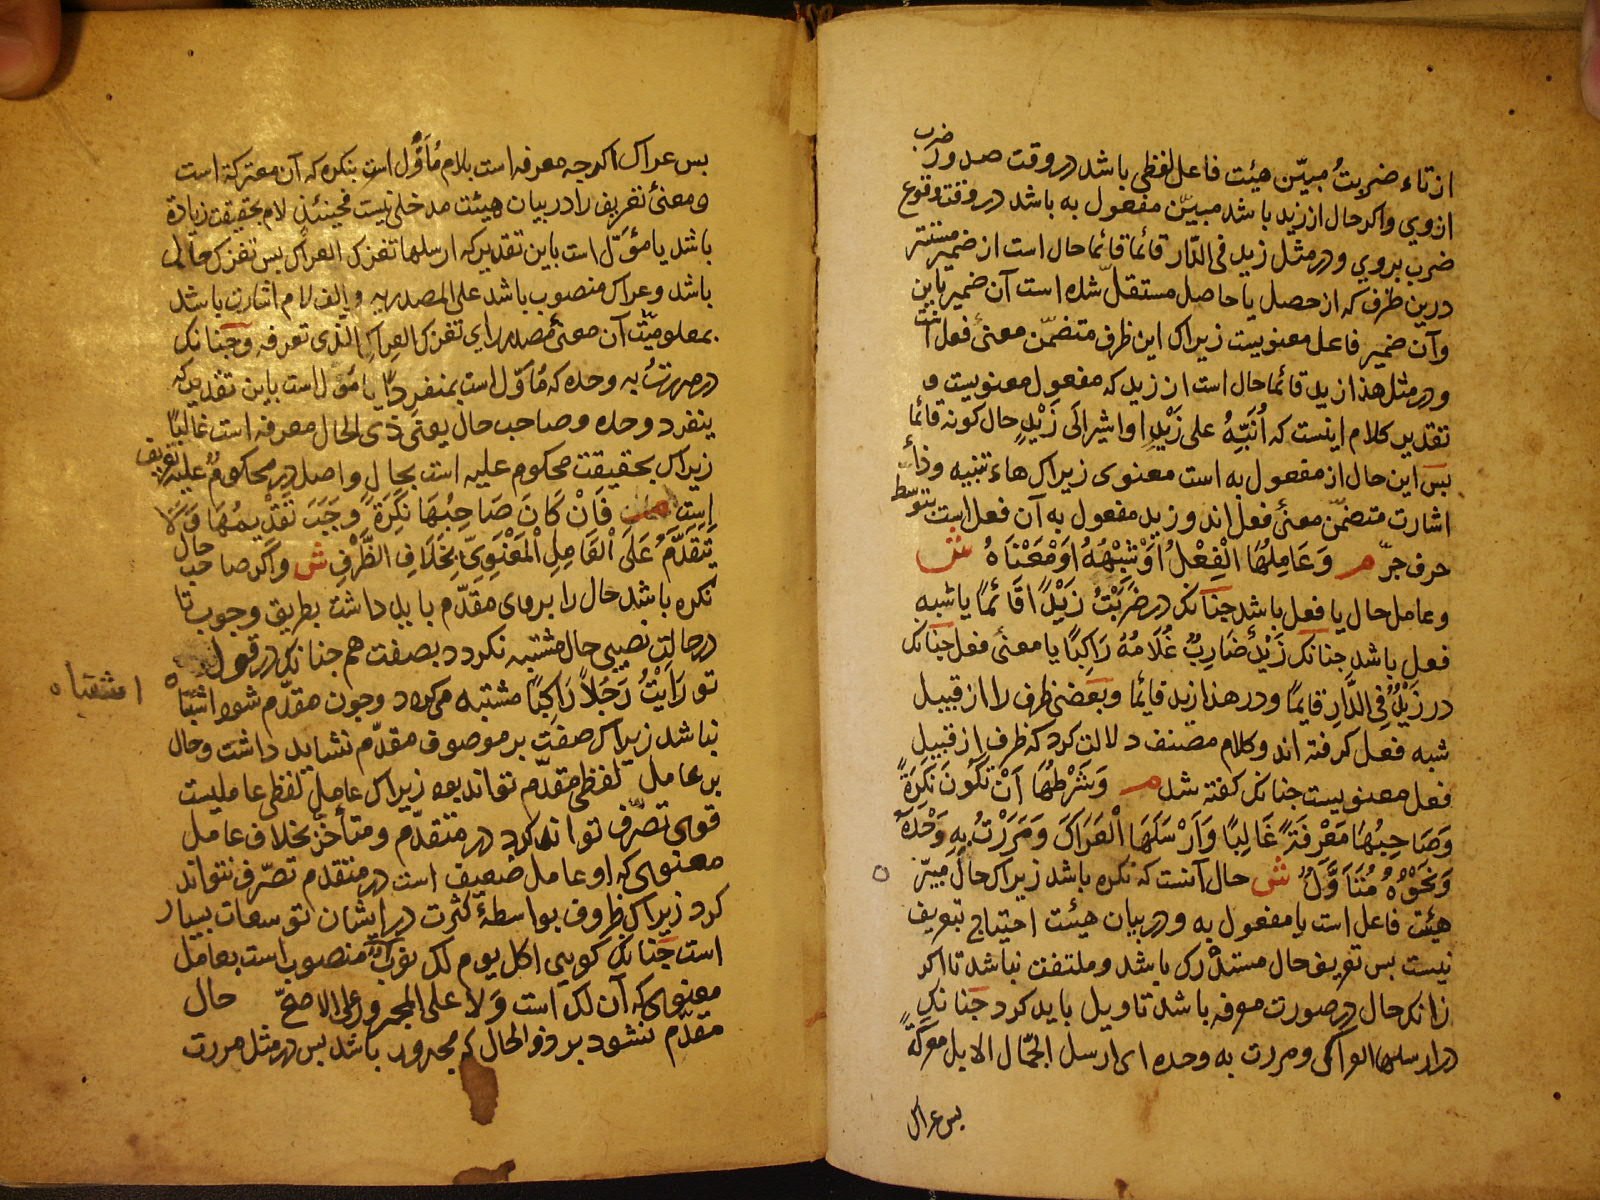 از تاء ضربتُ مبیّن هیئت فاعل لفظی باشد در وقت صدور ضرب
از وي و اکر حال از زید باشد مبیّن مفعول به باشد در وقت وقوع
ضرب بر وي و در مثل زید فی الدّار قائما قائما حال است از ضمیر مستتر
درین ظرف که از حصل یا حاصل مستقلّ شده است آن ضمیر باین
و آن ضمیر فاعل معنویست زیراک این ظرف متضمّن معنئ فعل است
و در مثل هذا زید قائما حال است از زید که مفعول معنویست و
تقدیر کلام اینست که اُنَبِّهُ علی زَیْدٍ او اشیر الَی زَیْدٍ حال کونه قائما
بس این حال از مفعول به است معنوی زیراک هاء تنبیه و ذا
اشارت متضمّن معنئ فعل اند و زید مفعول به آن فعل است بتوسّط
حرف جرّ م وَعَامِلُهَا الْفِعْلُ اَوْ شِبْهُهُ اَوْ مَعْنَاهُ ش
و عامل حال یا فعل باشد جنانک در ضَرَبْتُ زَیْدًا قَائمًا یا شبه
فعل باشد جنانک زَیْدٌ ضَارِبٌ غُلَامُهُ رَاکِبًا یا معنئ فعل جنانک
در زَیْدٌ فِی الدَّارِ قَایمًا و در هذا زید قایما و بعضی ظرف را از قبیل
شبه فعل کرفته اند و کلام مصنف دلالت کرد که ظرف از قبیل
فعل معنویست جنانک کفته شد م وَشَرْطُهَا اَنْ تَکُونَ نَکِرَةً
وَصَاحِبُهَا مَعْرِفَةً غَالِبًا وَاَرْسَلَهَا الْعِرَاکَ وَمَرَرْتُ بِهِ وَحْدَهُ
وَنَحْوُهُ مُتَاَوَّلٌ ش حال آنست که نکره باشد زیراک حال مبیّن
هیئت فاعل است یا مفعول به و در بیان هیئت احتیاج بتعریف
نیست بس تعریف حال مستدرک باشد و ملتفت نباشد تا اکر
زانک حال در صورت معرفه باشد تاویل باید کرد جنانک
در ارسلها العراک و مررت به وحده ای ارسل الجمّال الابل معترکةً
بس عراک
بس عراک اکرجه معرفه است بلام مُاَوَّل است بنکره که آن معترکة است
و معنئ تعریف را در بیان هیئت مدخلی نیست فحینئذٍ لام بحقیقت زیادة
باشد یا مؤَوّل است باین تقدیر که ارسلها تعترک العراک بس تعترک حالی
باشد و عراک منصوب باشد علی المصدریه و الف لام اشارت باشد
بمعلومیّت آن معنئ مصدر ای تعترک العِراک الّذی تعرفه و جنانک
در مررت به وحده که مُاَوّل است بمنفردًا یا مُؤَوّل است باین تقدیر که
ینفرد وحده و صاحب حال یعنی ذی الحال معرفه است غالبًا
زیراک بحقیقت محکوم علیه است بحال و اصل در محکومٌ علیه تعریف
است م فَاِنْ کَانَ صَاحِبُهَا نَکِرَةً وَجَبَ تَقْدِیمُهَا وَلَا
تَتَقَدَّمُ عَلَی الْعَامِلِ الْمَعْنَوِیِّ بِخَلَافِ الظَّرْفِ ش و اکر صاحب حال
نکره باشد حال را بر وی مقدّم باید داشت بطریق وجوب تا
در حالت نصبی حال مشتبه نکردد بصفت هم جنانک در قول
تو رَاَیْتُ رَجُلاً رَاکِبًا مشتبه می کردد و جون مقدّم شود اشتباه
اشتباه
نباشد زیراک صفت بر موصوف مقدّم نشاید داشت و حال
بر عامل لفظی مقدّم تواند بود زیراک عامل لفظی عاملیست
قوی تصّرف تواند کرد در متقدّم و متأخّر بخلاف عامل
معنوی که او عامل ضعیف است در متقدم تصّرف نتواند
کرد زیراک ظروف بواسطۀ کثرت در ایشان توسعات بسیار
است جنانک کویی اکل یوم لک ثوب منصوب است بعامل
معنوی که آن لک است وَلا علی المجرور علی الاصحّ حال
مقدّم نشود بر ذو الحال که مجرور باشد بس در مثل مررت